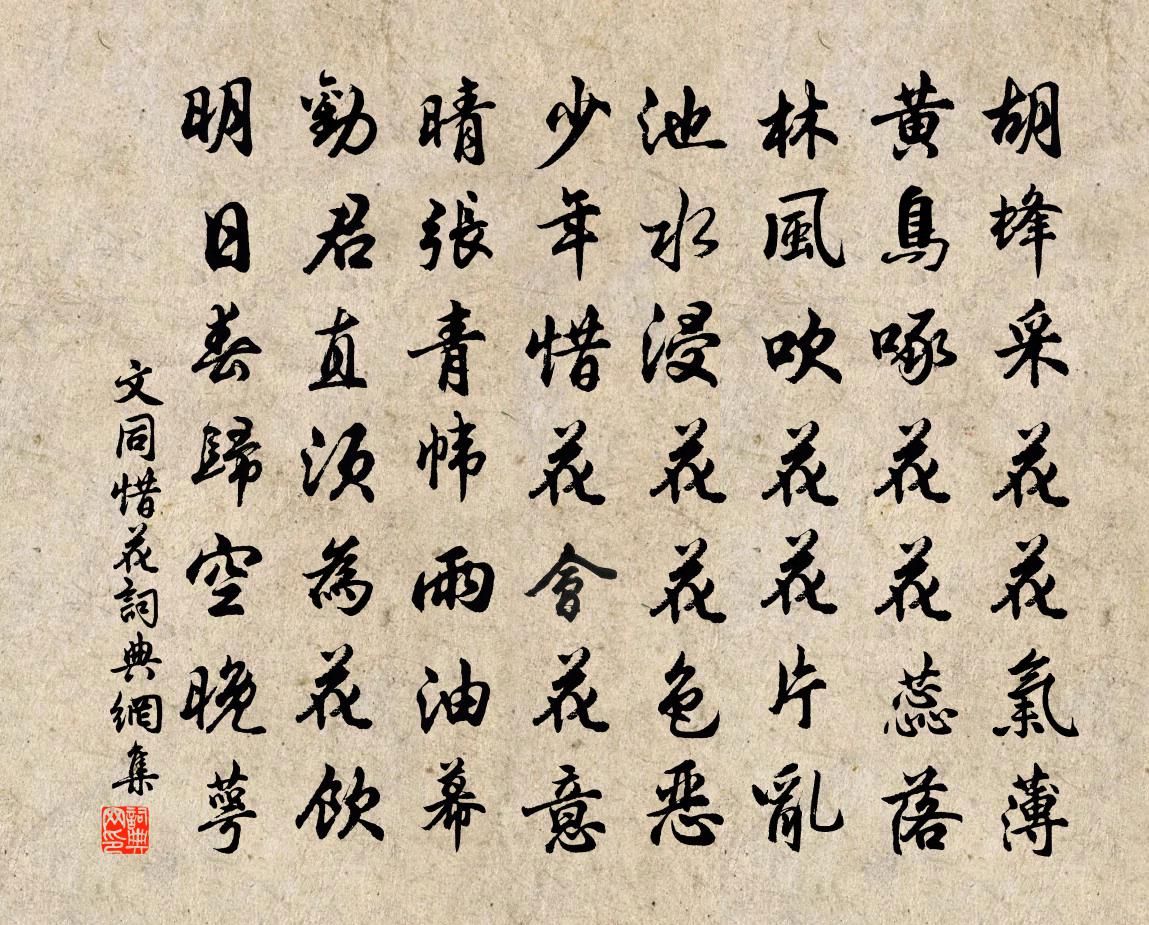 胡蜂采花花氣薄
黄鳥啄花花蕊落
林風吹花花片亂
池水浸花花色惡
少年惜花會花意
晴張青幃雨油幕
勸君直須為花飲
明日春歸空晚萼
文同惜花詞典網集
詞典網印